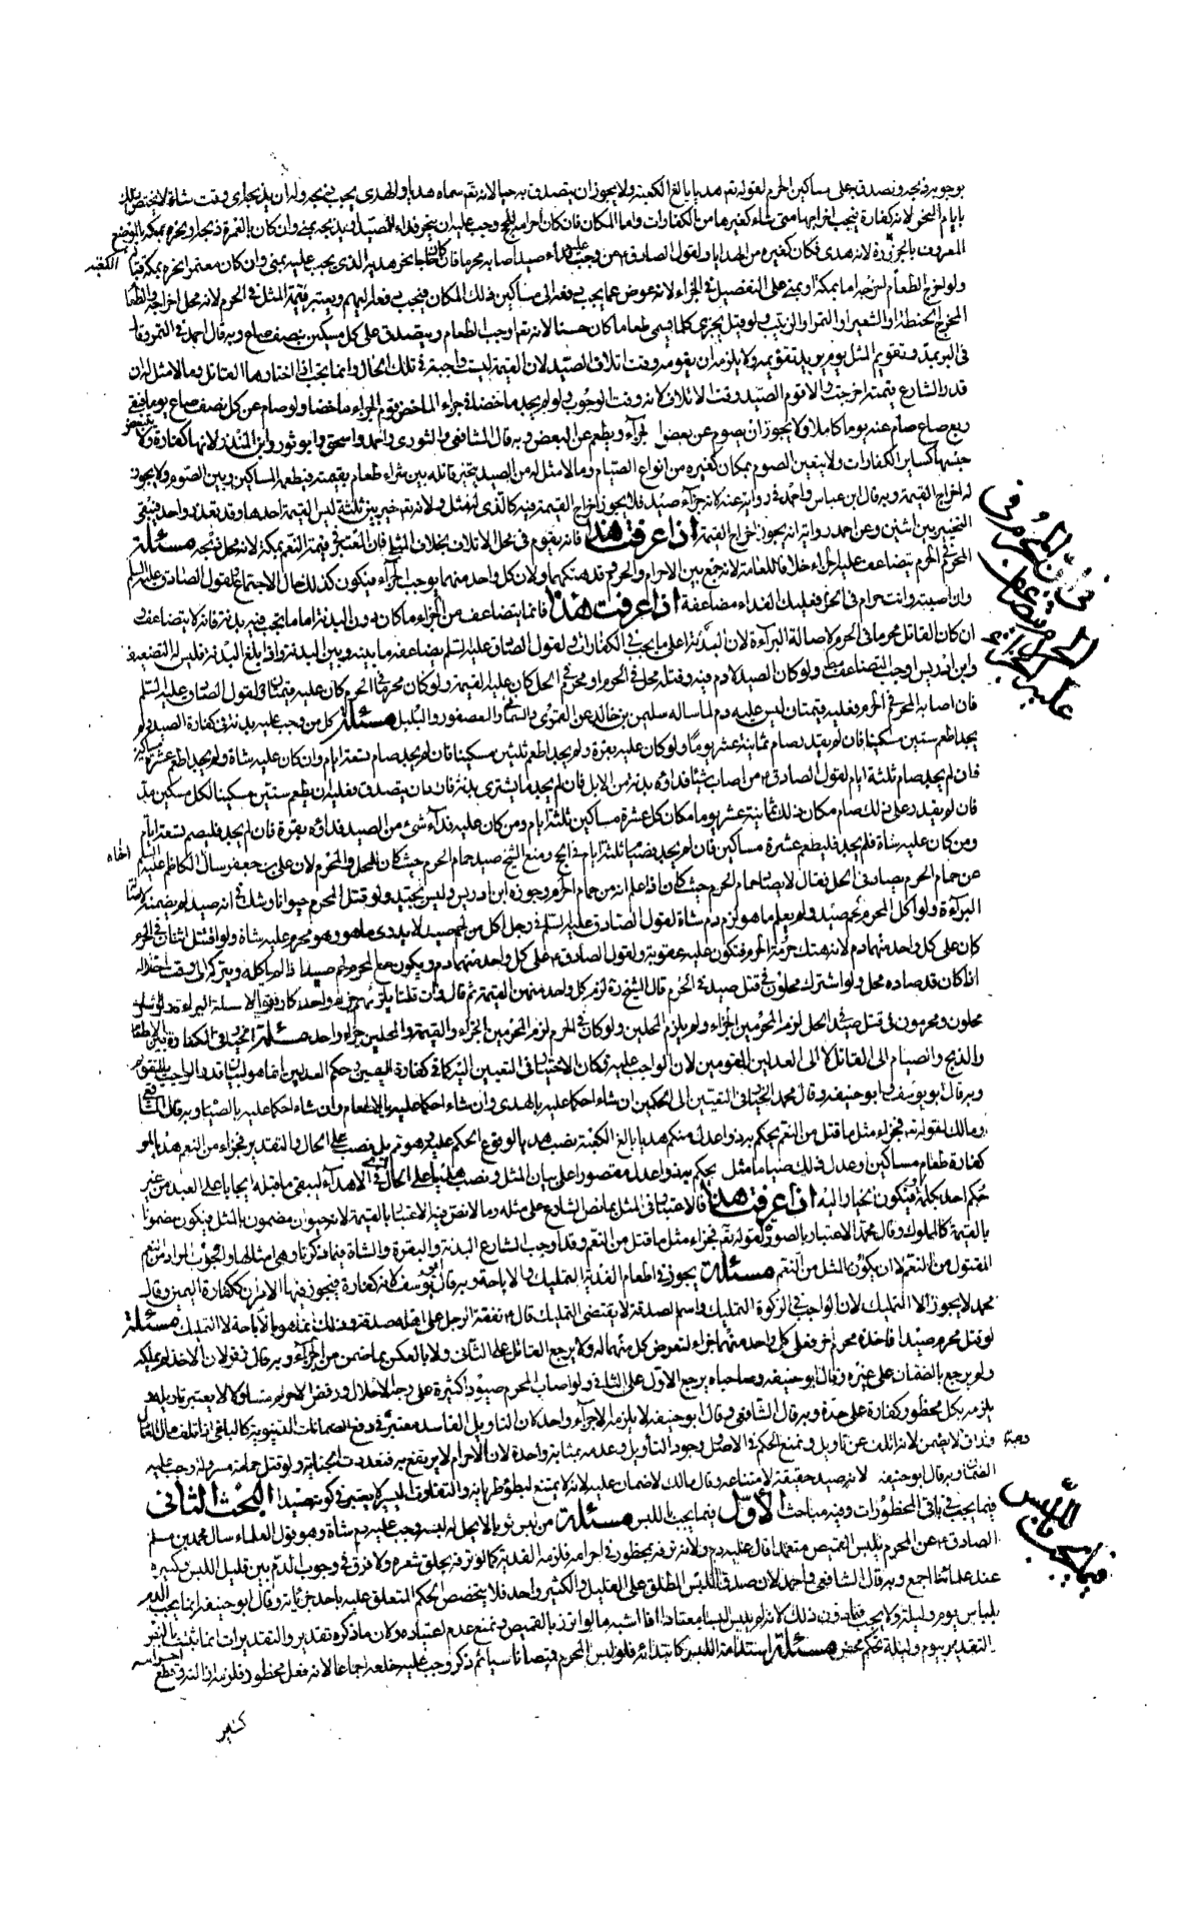 بوجوبه ذبحه وتصدق على مساكين الحرم لقوله تع هديا بالغ الكعبة ولا يجوز ان يتصدق به حيا لانه تع سماه هديا والهدى يجب ذبحه وله ان يذبحه اى وقت شاء لا يختص ذلك
بايام النحر لانه كفارة فيجب اخراجها متى شاء كغيرها من الكفارات واما المكان فان كان احرامه للحج وجب عليه ان ينحر او يذبح بمنى وان كان بالعمرة ذبحه او نحره بمكة بالموضع
المعروف بالحزورة لانه هدى فكان كغيره من الهدايا ولقول الصادق ع من وجب عليه فداء صيد اصابه محرما فان كان حاجا نحر هديه الذى يجب عليه بمنى وان كان معتمرا نحره بمكة قبالة الكعبة
ولو اخرج الطعام اخرجه اما بمكة او بمنى على التفصيل فى الجزاء لانه عوض عما يجب دفعه الى مساكين ذلك المكان فيجب دفعه اليهم ويعتبر قيمة المثل فى الحرم لانه محل اخراجه والطعام
المخرج الحنطة او الشعير او التمر او الزبيب ولو قيل يجزى كلما يسمى طعاما كان حسنا لانه تع اوجب الطعام ويتصدق على كل مسكين بنصف صاع وبه قال احمد فى التمر وقال
فى البر بمد وتقويم المثل يوم يريد تقويمه ولا يلزمه ان يقومه وقت اتلاف الصيد لان القيمة ليست واجبة فى تلك الحال وانما يجب اذا اختارها القاتل وما لا مثل له ان
قدر الشارع قيمته اخرجت والا قوم الصيد وقت الاتلاف لانه وقت الوجوب ولو لم يجد
ربع صاع صام عنه يوما كاملا ولا يجوز ان يصوم عن بعض الجزاء ويطعم عن البعض وبه قال الشافعى والثورى واحمد واسحق وابو ثور وابن المنذر لانها كفارة
جنسها كسائر الكفارات ولا يتعين الصوم بمكان كغيره من انواع الصيام وما لا مثل له من الصيد يتخير قاتله بين شراء طعام بقيمته فيطعمه المساكين وبين الصوم ولا يجوز
له اخراج القيمة وبه قال ابن عباس واحمد فى رواية عنه لانه جزاء صيد فلا يجوز اخراج القيمة فيه كالذى له مثل ولانه تع خير بين ثلثة ليس القيمة احدها وقد تعذر واحد فيبقى
التخيير بين اثنين وعن احمد رواية انه يجوز اخراج القيمة اذا عرفت هذا فانه يقوم فى محل الاتلاف بخلاف المثل فان المعتبر فى قيمته النعم بمكة لانه محل ذبحه مسئلة
المحرم فى الحرم يتضاعف عليه الجزاء خلافا للعامة لانه جمع بين الاحرام والحرم وقد هتكهما ولان كل واحد منهما يوجب الجزاء فيكون كذلك حال الاجتماع ولقول الصادق عليه السلم
وان اصبته وانت حرام فى الحرم فعليك الفداء مضاعفة اذا عرفت هذا فانما يتضاعف من الجزاء ما كان دون البدنة اما ما يجب فيه بدنة فانه لا يتضاعف
ان كان القاتل محرما فى الحرم لاصالة البراءة لان البدنة اعلى ما يجب فى الكفارات ولقول الصادق عليه السلم يضاعفه ما بينه وبين البدنة واذا بلغ البدنة فليس له التضعيف
وابن ادريس اوجب التضاعف مطلقا ولو كان الصيد لا دم فيه وقتله محل فى الحرم او محرم فى الحل كان عليه القيمة ولو كان محرما فى الحرم كان عليه قيمتان لقول الصادق عليه السلم
فان اصابه المحرم فى الحرم فعليه قيمتان ليس عليه دم لما ساله سليمن بن خالد عن القمرى والسمانى والعصفور والبلبل مسئلة كل من وجب عليه بدنة فى كفارة الصيد ولم
يجد اطعم ستين مسكينا فان لم يقدر صام ثمانية عشر يوما ولو كان عليه بقرة ولم يجد اطعم ثلثين مسكينا فان لم يجد صام تسعة ايام وان كان عليه شاة ولم يجد اطعم عشرة مساكين
فان لم يجد صام ثلثة ايام لقول الصادق ع من اصاب شيئا فداؤه بدنة من الابل فان لم يجد ما يشترى بدنة فاراد ان يتصدق فعليه ان يطعم ستين مسكينا لكل مسكين مد
فان لم يقدر على ذلك صام مكان ذلك ثمانية عشر يوما مكان كل عشرة مساكين ثلثة ايام ومن كان عليه فداء شئ من الصيد فداؤه بقرة فان لم يجد فليصم تسعة ايام
ومن كان عليه شاة فلم يجد فليطعم عشرة مساكين فان لم يجد فصيام ثلثة ايام فى الحج ومنع الشيخ صيد حمام الحرم حيث كان للمحل والمحرم لان على بن جعفر سال الكاظم عليه السلم اخاه
عن حمام الحرم يصاد فى الحل فقال لا يصاد حمام الحرم حيث كان اذا علم انه من حمام الحرم وجوزه ابن ادريس وليس بجيد ولو قتل المحرم حيوانا وشك فى انه صيد لم يضمنه لاصالة
البراءة ولو اكل المحرم لحم صيد ولم يعلم ما هو لزم دم شاة لقول الصادق عليه السلم فى رجل اكل من لحم صيد لا يدرى ما هو وهو محرم عليه شاة ولو اقتتل اثنان فى الحرم
كان على كل واحد منهما دم لانه هتك حرمة الحرم فتكون عليه عقوبة ولقول الصادق ع على كل واحد منهما دم ويكون
اذا كان قد صاده محل ولو اشترك محلون فى قتل صيد فى الحرم قال الشيخ ره لزم كل واحد منهم القيمة ثم قال وان قلنا يلزمهم جزاء واحد كان قويا لاصالة البراءة
محلون ومحرمون فى قتل صيد فى الحل لزم المحرمين الجزاء ولم يلزم المحلين ولو كان فى الحرم لزم المحرمين الجزاء والقيمة والمحلين جزاء واحد مسئلة الخيار فى الكفارة بين الاطعام
والذبح والصيام الى القاتل لا الى العدلين المقومين لان الواجب عليه فكان الاختيار فى التعيين اليه كما فى كفارة اليمين وحكم العدلين انما هو لبيان قدر الواجب بالتقويم
وبه قال ابو يوسف وابو حنيفة وقال محمد الخيار فى التعيين الى الحكمين ان شاء احكما عليه بالهدى وان شاء احكما عليه بالاطعام وان شاء احكما عليه بالصيام وبه قال الشافعى
ومالك لقوله تع فجزاء مثل ما قتل من النعم يحكم به ذوا عدل منكم هديا بالغ الكعبة نصب هديا لوقوع الحكم عليه وهو ممنوع بل نصب على الحال والتقدير فجزاء من النعم هديا او
كفارة طعام مساكين او عدل ذلك صياما مثل يحكم به ذوا عدل مقصورا على بيان المثل ونصب هديا على الحال
حكم احد بحكمه فيكون الخيار اليه اذا عرفت هذا فالاعتبار فى المثل بما نص الشارع على مثله وما لا نص فيه الاعتبار بالقيمة لانه حيوان مضمون بالمثل فيكون مضمونا
بالقيمة كالمملوك وقال محمد الاعتبار بالصورة لقوله تع فجزاء مثل ما قتل من النعم وقد اوجب الشارع البدنة والبقرة والشاة فيما ذكرناه وهى امثلها والجواب المراد من نعم
المقتول من النعم لا ان يكون المثل من النعم مسئلة يجوز فى اطعام الفدية التمليك والاباحة وبه قال ابو يوسف لانه كفارة فيجوز فيها الامران ككفارة اليمين وقال
محمد لا يجوز الا التمليك لان الواجب فى الزكوة التمليك واسم الصدقة لا يقتضى التمليك قال ع نفقة الرجل على اهله صدقة وذلك انما هو بالاباحة لا التمليك مسئلة
لو قتل محرم صيدا فاخذه محرم اخر فعلى كل واحد منهما جزاء لتعرض كل منهما له ولا يرجع القاتل على الثانى ولا بالعكس بما ضمن من الجزاء وبه قال زفر لان الاخذ لم يملكه
ولم يرجع بالضمان على غيره وقال ابو حنيفة وصاحباه يرجع الاول على الثانى ولو اصاب المحرم صيودا كثيرة على وجه الاحلال ورفض الاحرام متاولا لا يعتبر تاويله
يلزمه بكل محظور كفارة على حدة وبه قال الشافعى وقال ابو حنيفة لا يلزمه الا جزاء واحد كان التاويل الفاسد معتبر فى دفع الضمانات الدنيوية كالباغى اذا اتلف مال العادل
ودمه فانه لا يضمن لانه اتلف عن تاويل ونمنع الحكم فى الاصل ووجود التاويل وعدمه بمثابة واحدة لان الاحرام لا يرتفع به فتعددت الجناية ولو قتل حمامة مسرولة وجب عليه
الضمان وبه قال ابو حنيفة لانه صيد حقيقة لامتناعه وقال مالك لا ضمان عليه لانه لا يمتنع لبطؤ طيرانه والتفاوت اليسير لا يعتبر فى كونه صيدا البحث الثانى
فيما يجب فى باقى المحظورات وفيه مباحث الاول فيما يجب باللبس مسئلة من لبس ثوبا لا يحل له لبسه وجب عليه دم شاة وهو قول العلماء سال محمد بن مسلم
الصادق ع عن المحرم يلبس القميص متعمدا قال عليه دم ولانه ترفه بمحظور فى احرامه فلزمه الفدية كما لو ترفه بحلق شعره ولا فرق فى وجوب الدم بين قليل اللبس وكثيره
عند علمائنا اجمع وبه قال الشافعى واحمد لان صدق اللبس المطلق على القليل والكثير واحد فلا يتخصص الحكم المتعلق عليه باحد جزئياته وقال ابو حنيفة انما يجب الدم
بلباس يوم وليلة ولا يجب فيما دون ذلك لانه لم يلبس لبسا معتادا فاشبه ما لو اتزر بالقميص ونمنع عدم اعتياده ولان ما ذكره تقدير والتقديرات انما تثبت بالنص
التقدير بيوم وليلة تحكم محض مسئلة استدامة اللبس كابتدائه فلو لبس المحرم قميصا ناسيا ثم ذكر وجب عليه خلعه اجماعا لانه فعل محظور فلزمه ازالته وقطع
كغير
فى ان المحرم فى
الحرم يتضاعف
عليه الجزاء
فيما يجب باللبس